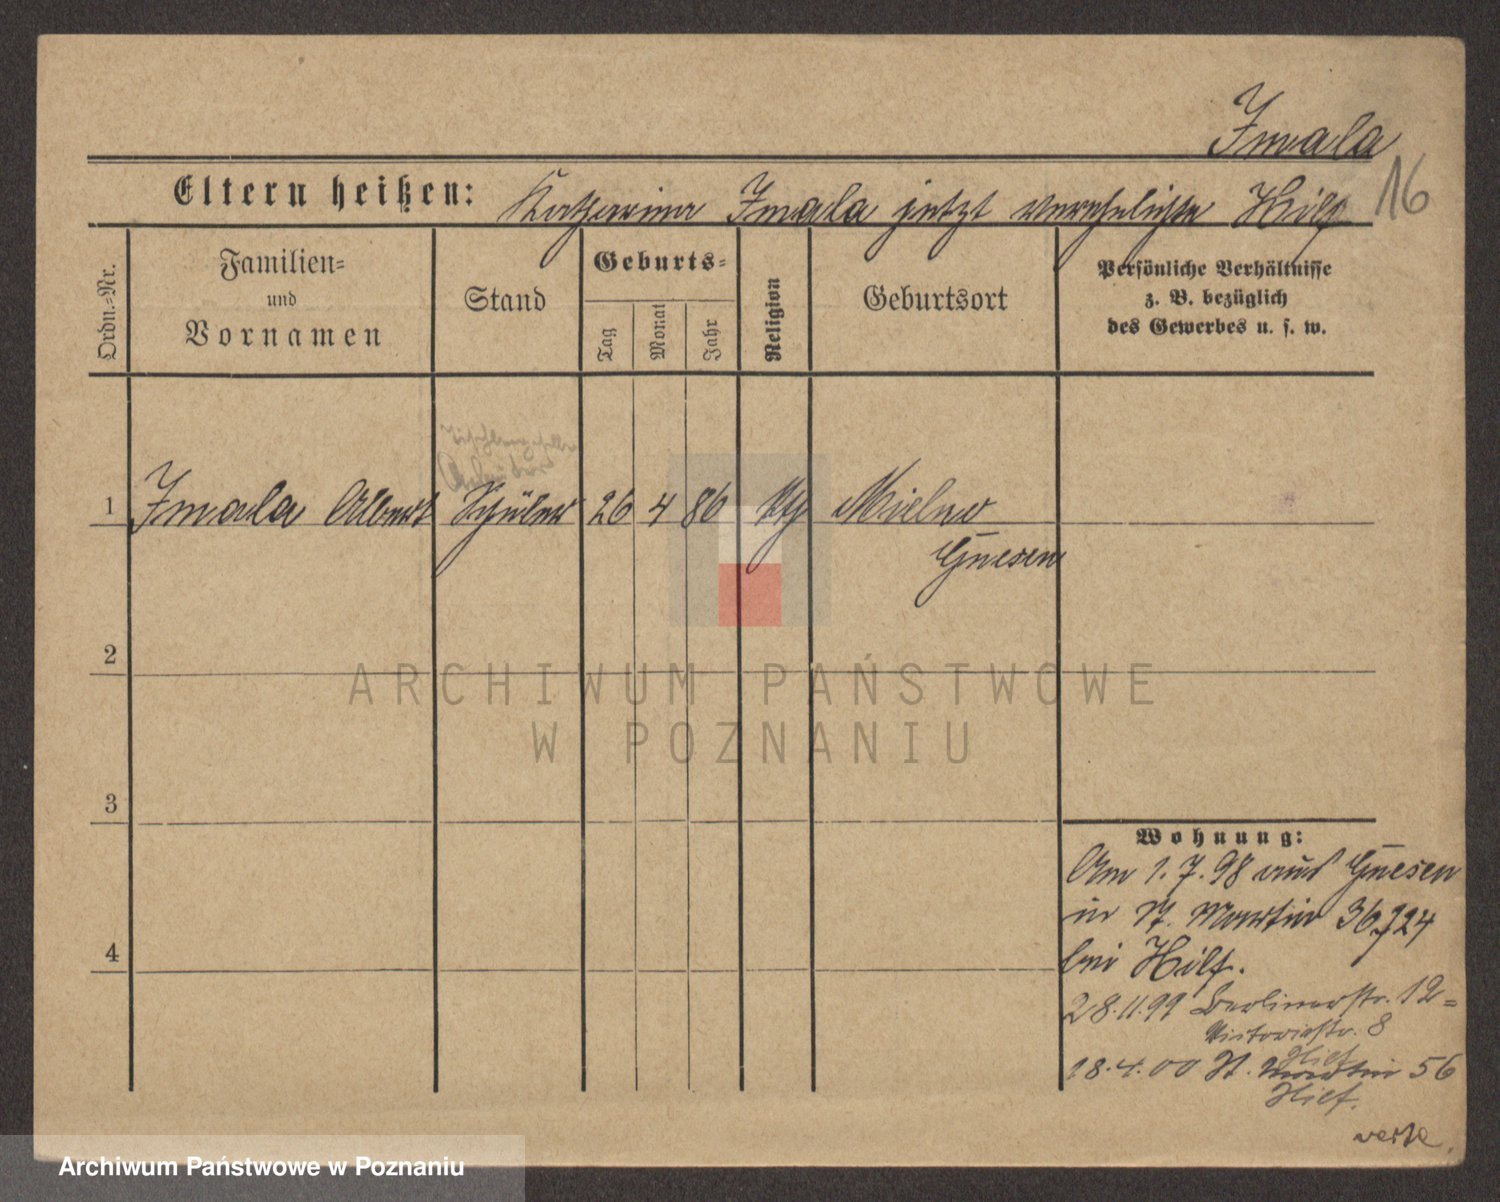 Imala
16
Eltern heißen: Katharina Imala jetzt verehelichte Hilf
Ordn.=Nr.
Familien=
und
Vornamen
Stand
Geburts=
Tag
Monat
Jahr
Religion
Geburtsort
Persönliche Verhältnisse
z. B. bezüglich
des Gewerbes u. s. w.
1 Imala Albert Schüler 26 4 86 Mielno
Gnesen
2
ARCHIWUM PAŃSTWOWE
W POZNANIU
3
Wohnung:
Am 1.7.98 aus Gnesen
in St. Martin 36/24
bei Hilf.
4
28.11.99 Berlinerstr. 12=
Victoriastr. 8
Hilf
18.4.00 St. Martin 56
Hilf.
Archiwum Państwowe w Poznaniu